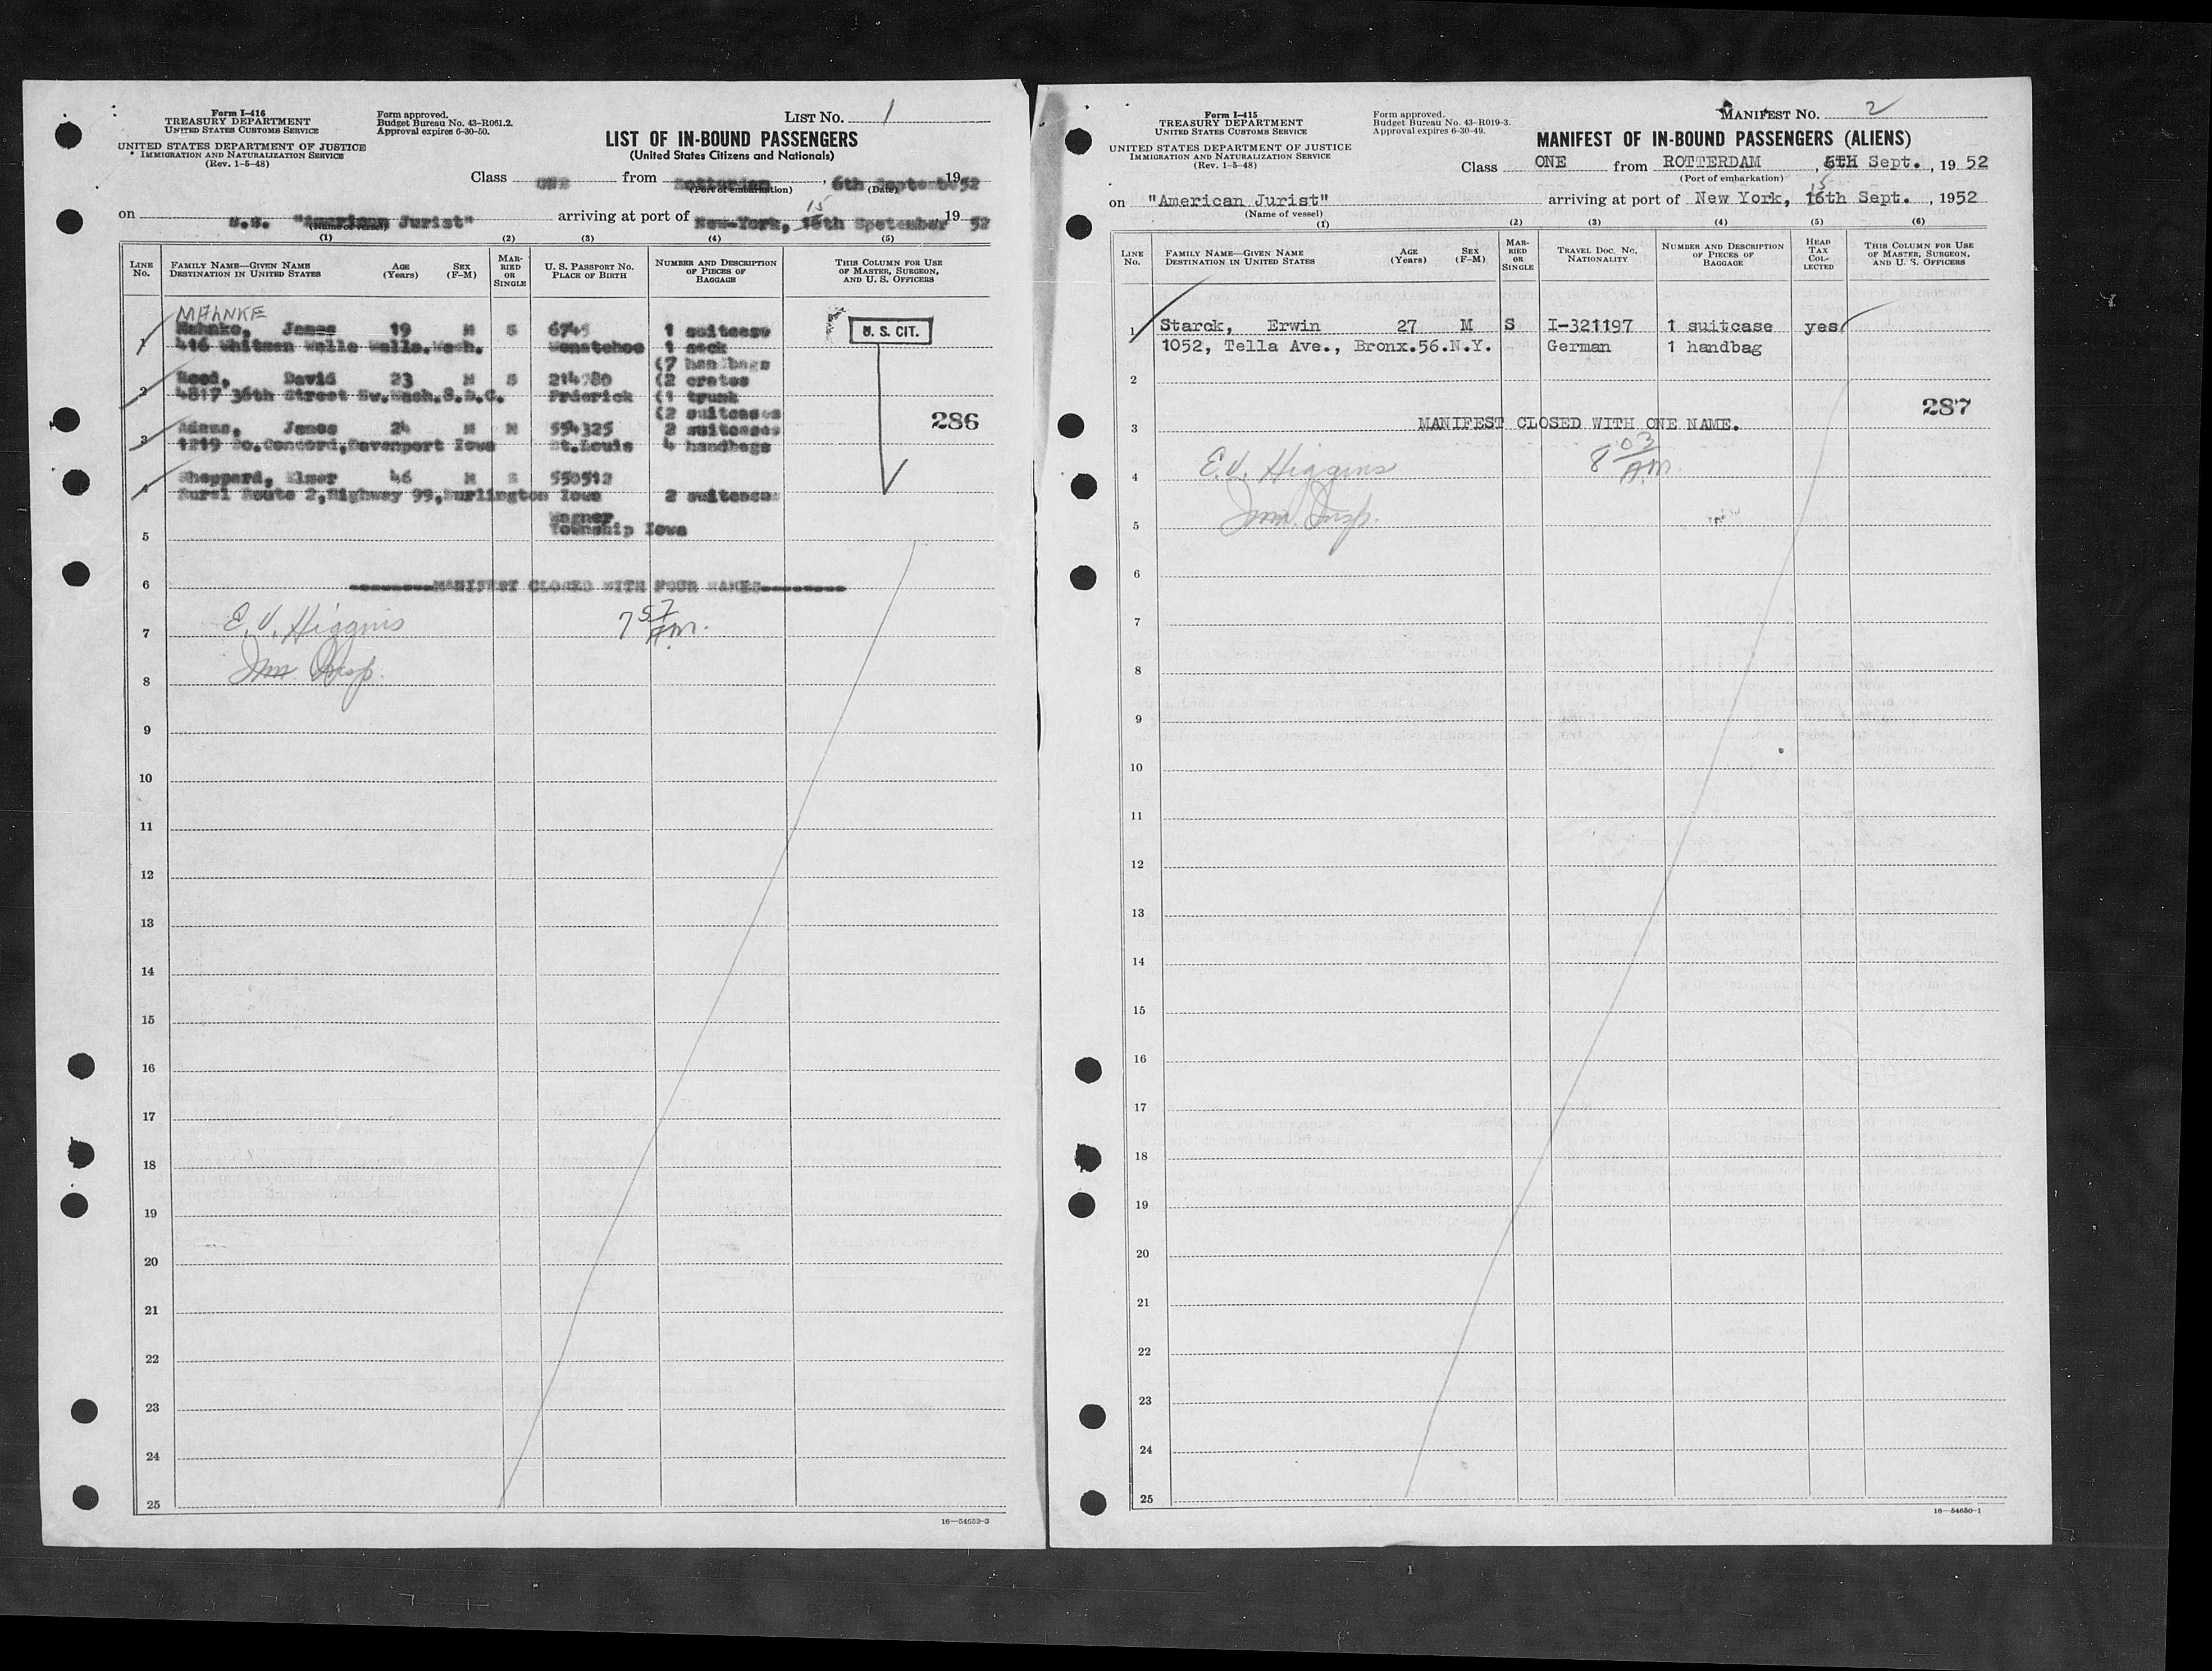 Form I-416
TREASURY DEPARTMENT
UNITED STATES CUSTOMS SERVICE
UNITED STATES DEPARTMENT OF JUSTICE
IMMIGRATION AND NATURALIZATION SERVICE
(Rev. 1-5-48)
Form approved.
Budget Bureau No. 43-R061.2.
Approval expires 6-30-50.
LIST No. 1
LIST OF IN-BOUND PASSENGERS
(United States Citizens and Nationals)
Class ONE from Rotterdam, 6th September 1952
(Port of embarkation) (Date)
on s.s. "American Jurist" arriving at port of New-York, 15 16th Spetember 19 52
(Name of vessel)
(1) (2) (3) (4) (5)
LINE No. FAMILY NAME—GIVEN NAME DESTINATION IN UNITED STATES AGE (Years) SEX (F-M) MARRIED OR SINGLE U. S. PASSPORT No. PLACE OF BIRTH NUMBER AND DESCRIPTION OF PIECES OF BAGGAGE THIS COLUMN FOR USE OF MASTER, SURGEON, AND U. S. OFFICERS
MAHNKE
1 Mahnke, James 19 M S 6745 1 suitcase U. S. CIT.
416 Whitman Walla Walla.Wash. 1 sack
(7 handbags
2 Reed, David 23 M S 214780 (2 crates
4817 36th Street Nw.Wash.8.D.C. Frderick (1 trunk
(2 suitcases
286
3 Adams, James 24 M M 554325 2 suitcases
1219 So.Concord,Davenport Iowa St.Louis 4 handbags
4 Sheppard, Elmer 46 M S 550512
Rural Route 2,Highway 99,Burlington Iowa 2 suitcases
Wagner
5 Township Iowa
6 MANIFEST CLOSED WITH FOUR NAMES
7 E. V. Higgins 7 57 A.M.
8 Imm. Insp.
9
10
11
12
13
14
15
16
17
18
19
20
21
22
23
24
25
16—54652-3
Form I-415
TREASURY DEPARTMENT
UNITED STATES CUSTOMS SERVICE
UNITED STATES DEPARTMENT OF JUSTICE
IMMIGRATION AND NATURALIZATION SERVICE
(Rev. 1-5-48)
Form approved.
Budget Bureau No. 43-R019-3.
Approval expires 6-30-49.
MANIFEST No. 2
MANIFEST OF IN-BOUND PASSENGERS (ALIENS)
Class ONE from ROTTERDAM, 6TH Sept., 19 52
(Port of embarkation)
on "American Jurist" arriving at port of New York, 15 16th Sept., 1952
(Name of vessel)
(1) (2) (3) (4) (5) (6)
LINE No. FAMILY NAME—GIVEN NAME DESTINATION IN UNITED STATES AGE (Years) SEX (F-M) MARRIED OR SINGLE TRAVEL DOC. No. NATIONALITY NUMBER AND DESCRIPTION OF PIECES OF BAGGAGE HEAD TAX COLLECTED THIS COLUMN FOR USE OF MASTER, SURGEON, AND U. S. OFFICERS
1 Starck, Erwin 27 M S I-321197 1 suitcase yes
1052, Tella Ave., Bronx.56.N.Y. German 1 handbag
2
287
3 MANIFEST CLOSED WITH ONE NAME.
4 E. V. Higgins 8 03 A.M.
5 Imm. Insp.
6
7
8
9
10
11
12
13
14
15
16
17
18
19
20
21
22
23
24
25
16—54650-1